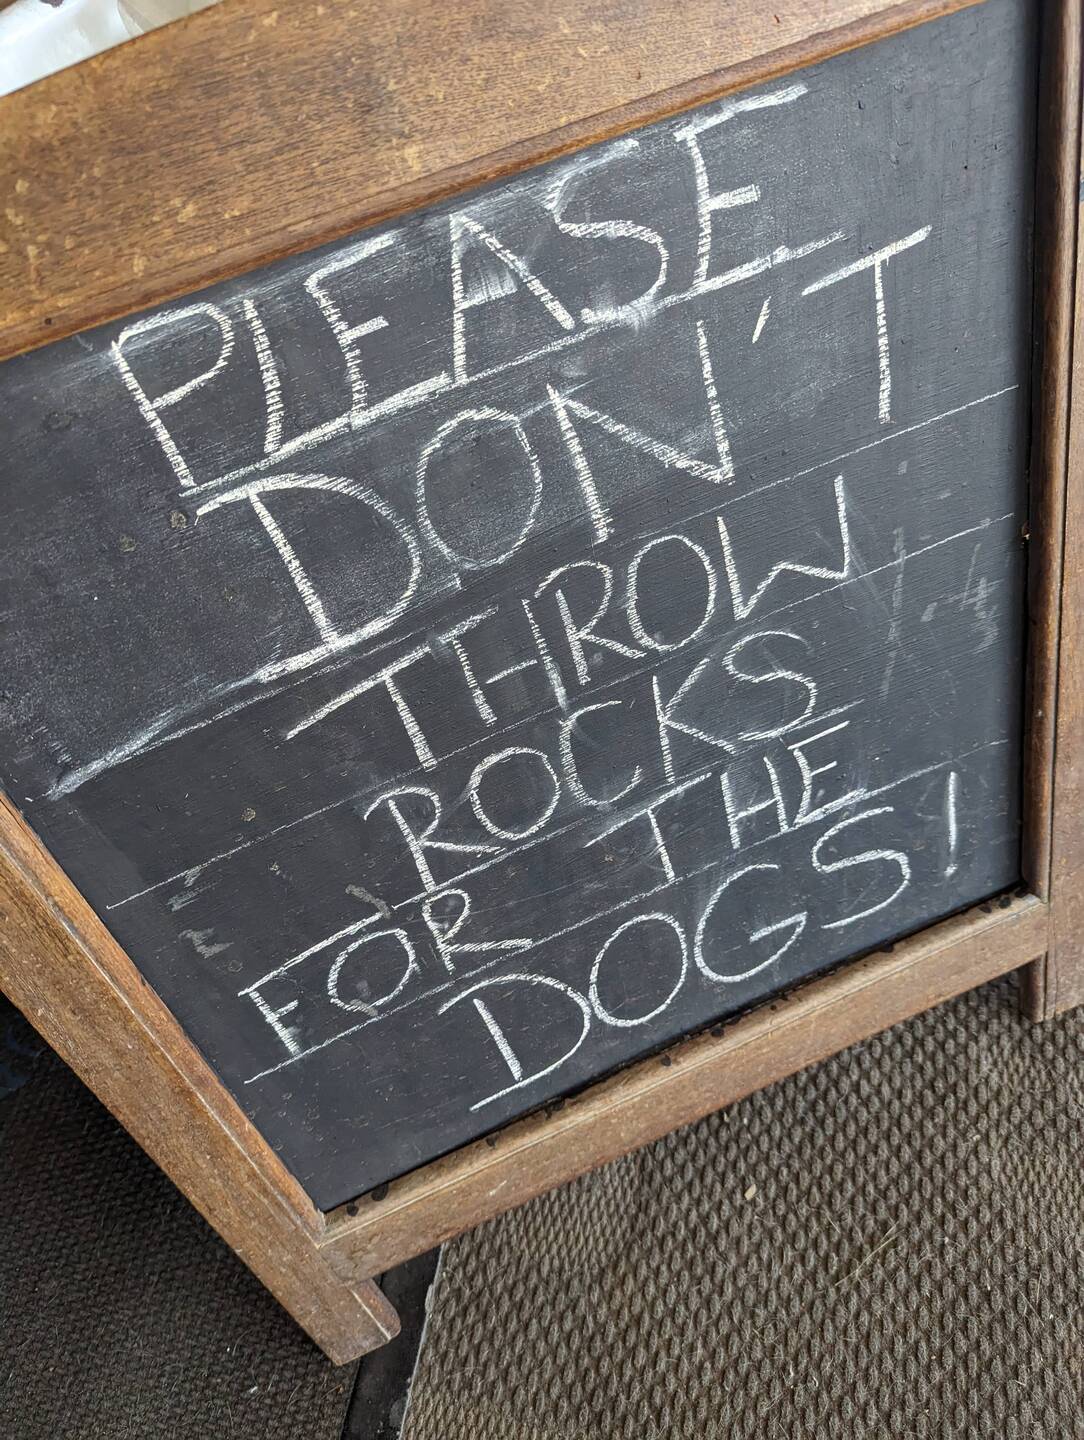 PLEASE
DON'T
THROW
ROCKS
FOR THE
DOGS!